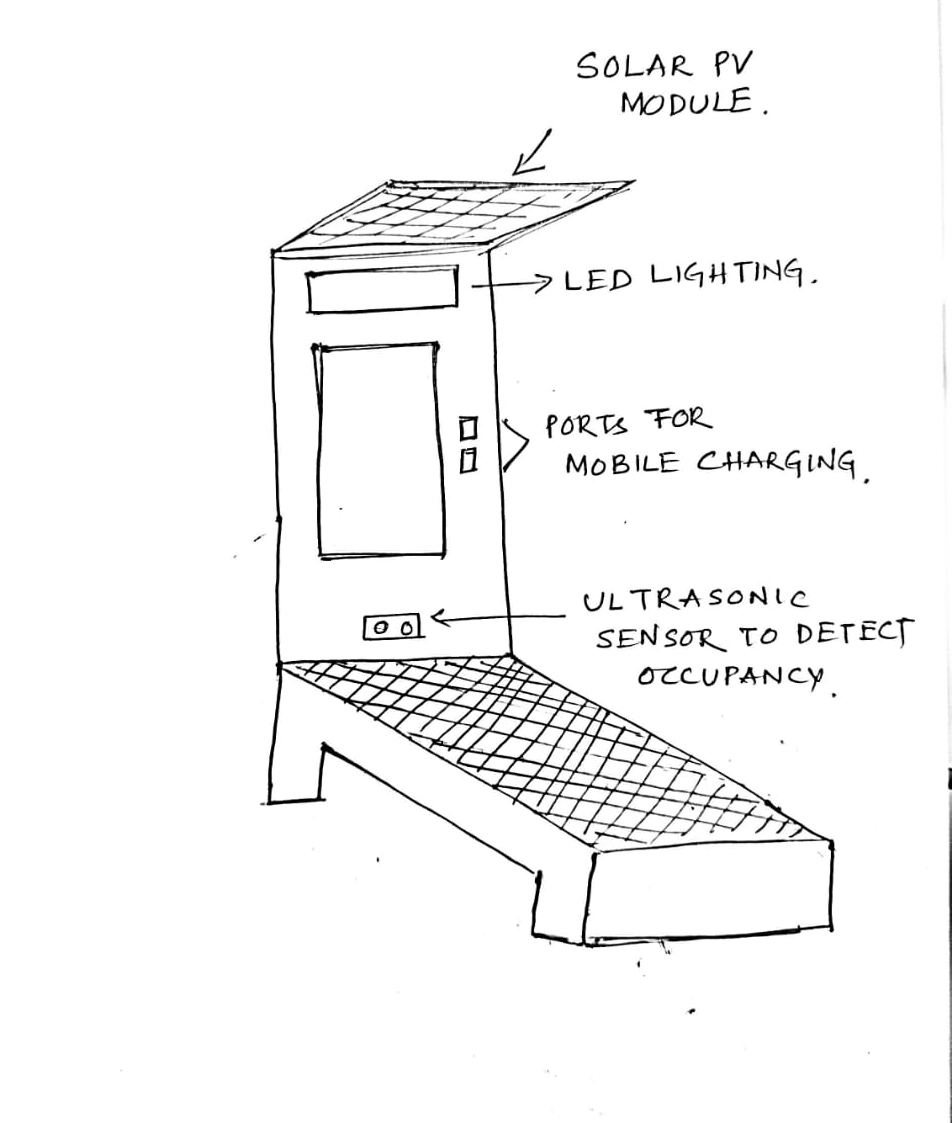 SOLAR PV
MODULE.
LED LIGHTING.
PORTS FOR
MOBILE CHARGING.
ULTRASONIC
SENSOR TO DETECT
OCCUPANCY.